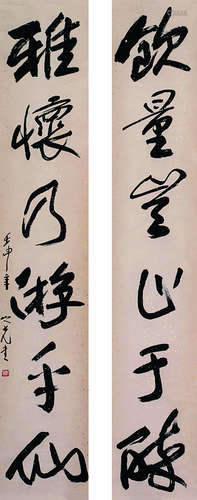 飲量豈止于醉
雅懷乃游乎仙
壬申年